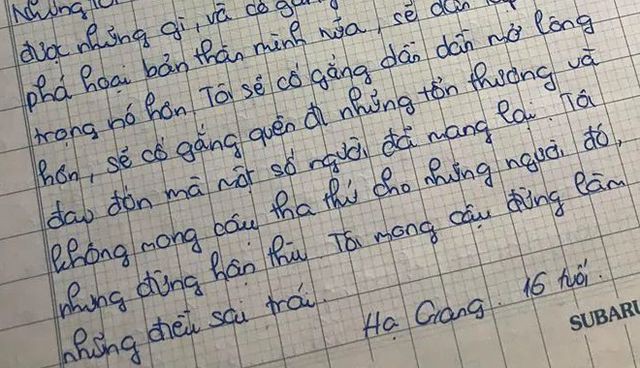 được những gì, và cố
phá hoại bản thân mình nữa, sẽ dần
trọng nó hơn. Tôi sẽ cố gắng dần dần mở lòng
hơn, sẽ cố gắng quên đi những tổn thương và
đau đớn mà một số người đã mang lại. Tôi
không mong cậu tha thứ cho những người đó,
nhưng đừng hận thù. Tôi mong cậu đừng làm
những điều sai trái.
Hạ Giang. 16 tuổi.
SUBARU